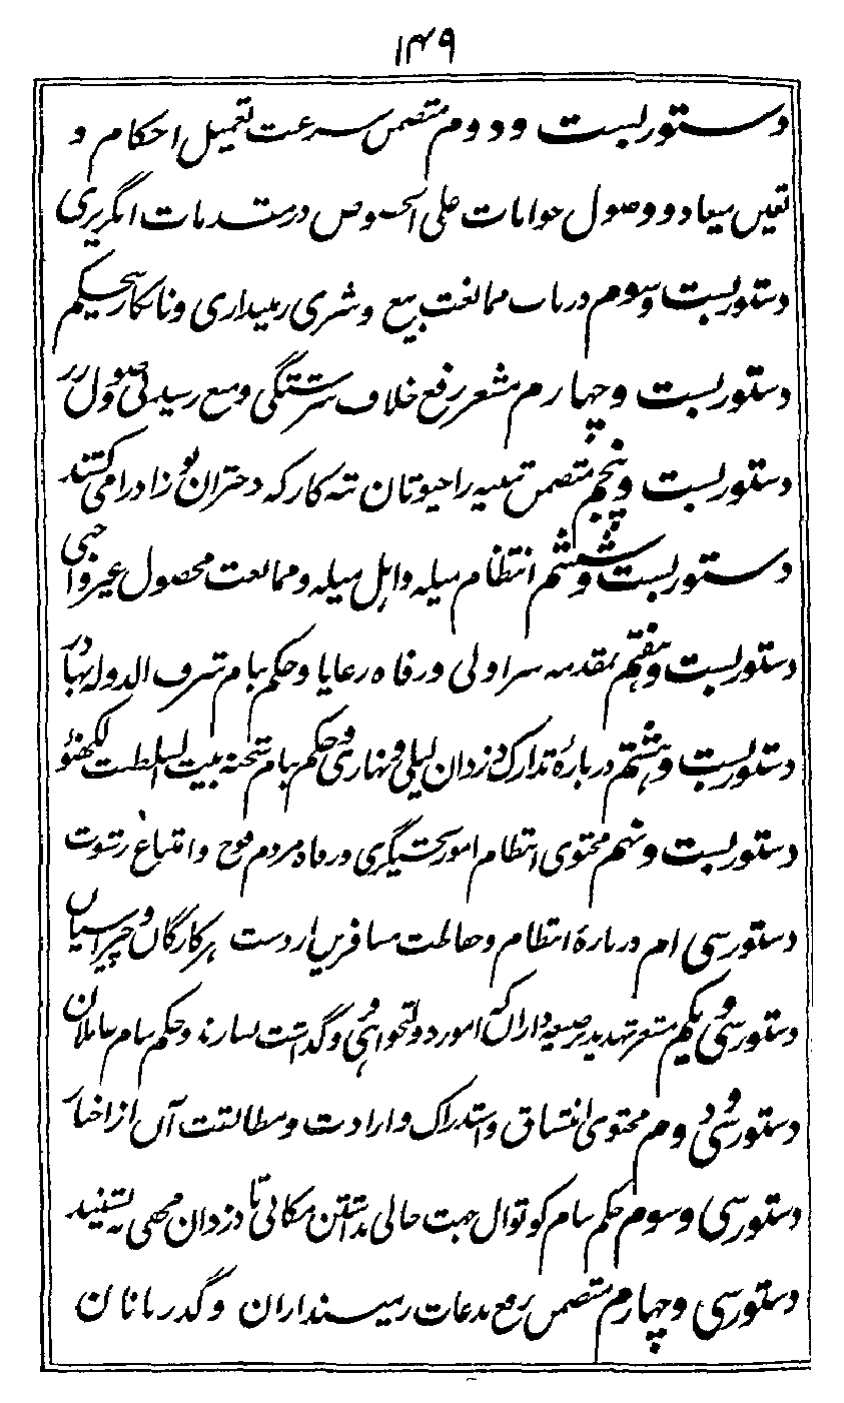 ۱۴۹
دستور بست و دوم متضمن سرعت تعمیل احکام و
تعین میعاد و وصول جوابات علی الخصوص در مقدمات انگریزی
دستور بست و سوم در باب ممانعت بیع و شری زمینداری و نانکار
دستور بست و چهارم مشعر رفع خلاف سررشتگی و منع رسید وصول زر
دستور بست و پنجم متضمن تنبیه راجپوتان تبه کار که دختران نوزاد را می کشند
دستور بست و ششم انتظام میله و اهل میله و ممانعت محصول غیر واجبی
دستور بست و هفتم بمقدمه سزاولی و رفاه رعایا و حکم بنام شرف الدوله بهادر
دستور بست و هشتم درباره تدارک دزدان لیلی و نهاری و حکم بنام شحنه بیت السلطنت لکهنؤ
دستور بست و نهم محتوی انتظام امور بخشیگری و رفاه مردم فوج و امتناع رشوت
دستور سی ام درباره انتظام و حفاظت مسافرین از دست هرکارگان و چپراسیان
دستور سی و یکم مشعر تهدید بر صیغه داران که امور دولتخواهی وگذاشت نسازند و حکم بنام عاملان
دستور سی و دوم محتوی انتساق و استدراک واردات و مطابقت آن از اخبار
دستور سی و سوم حکم بنام کوتوال جهت خالی نداشتن مکانی تا دزدان مخفی نه نشینند
دستور سی و چهارم متضمن رفع بدعات زمینداران و گذربانان